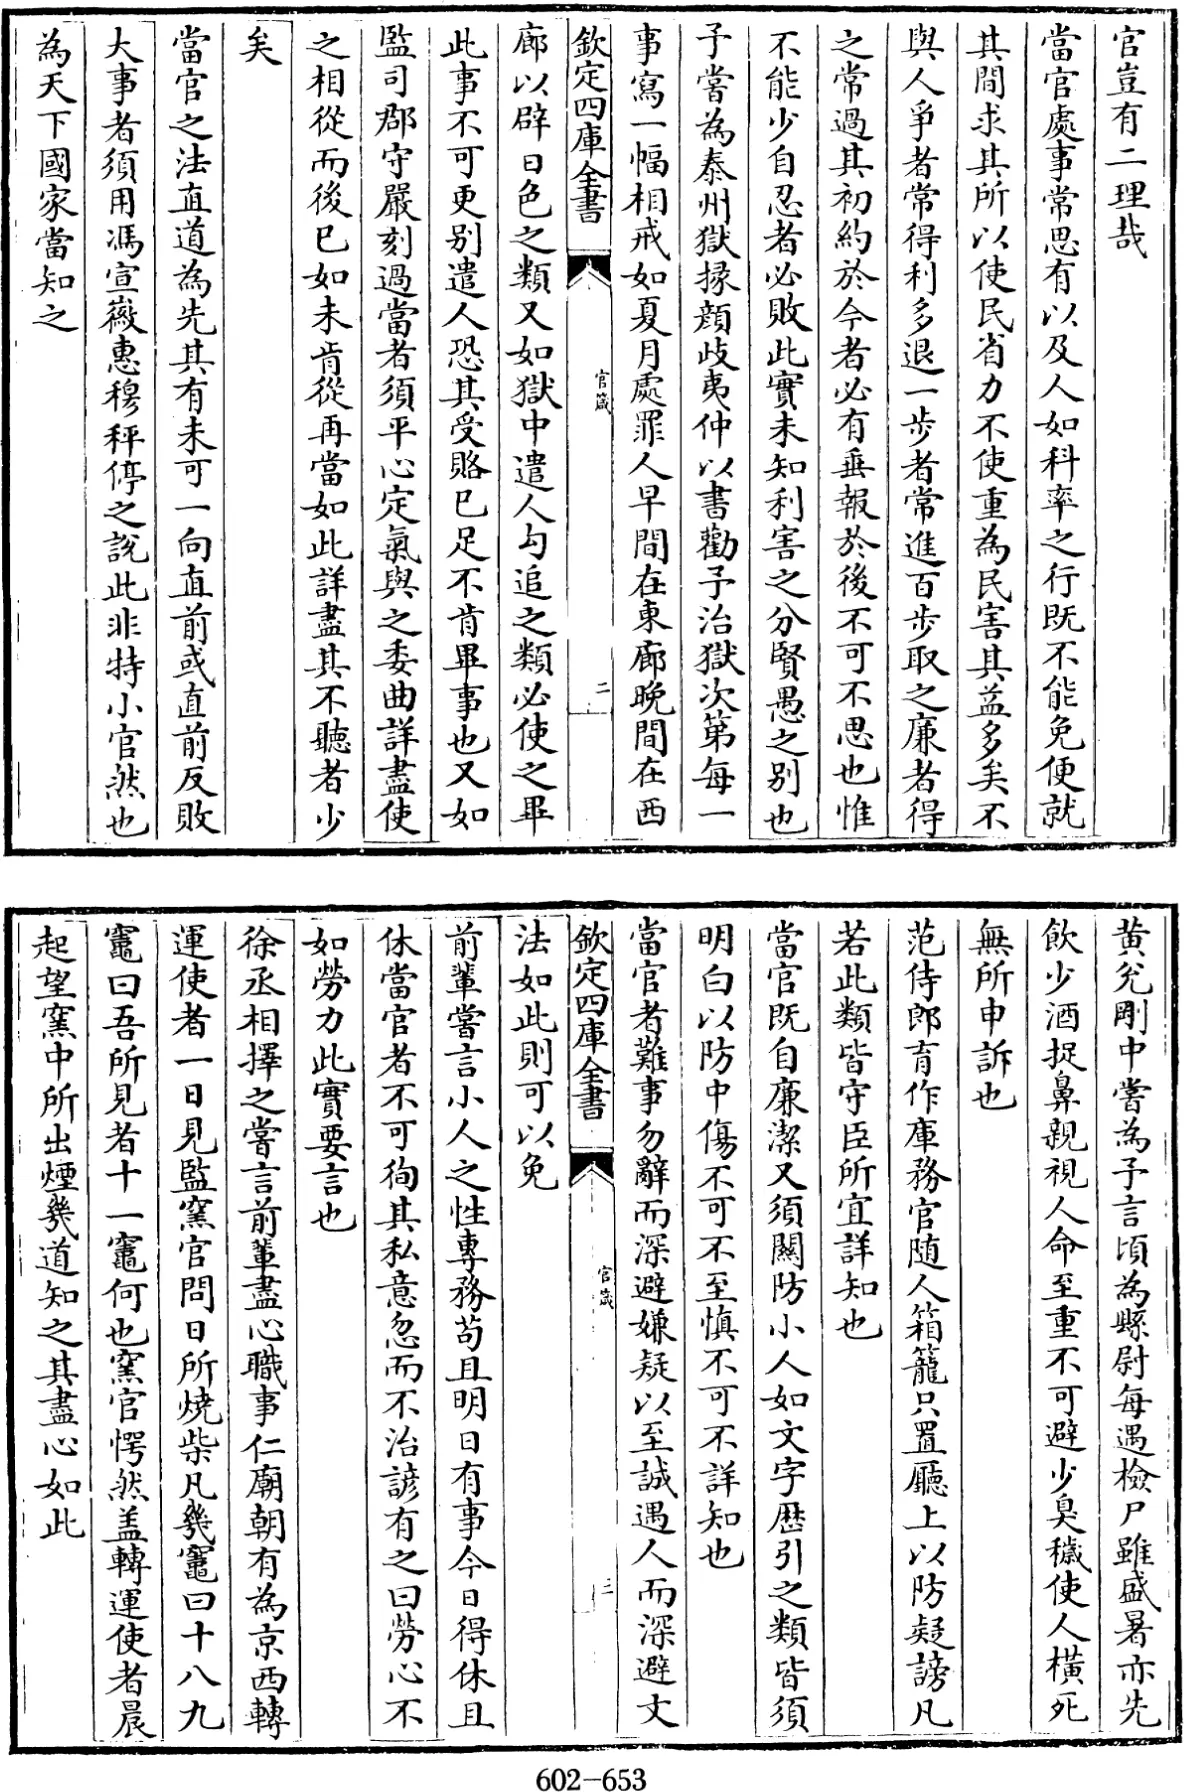 官豈有二理哉
當官處事常思有以及人如科率之行既不能免便就
其間求其所以使民省力不使重為民害其益多矣不
與人爭者常得利多退一步者常進百步取之廉者得
之常過其初約於今者必有垂報於後不可不思也惟
不能少自忍者必敗此實未知利害之分賢愚之別也
予嘗為泰州獄掾顔歧夷仲以書勸予治獄次第每一
事寫一幅相戒如夏月處罪人早間在東廊晚間在西
欽定四庫全書
官箴
二
廊以辟日色之類又如獄中遣人勾追之類必使之畢
此事不可更别遣人恐其受賂已足不肯畢事也又如
監司郡守嚴刻過當者須平心定氣與之委曲詳盡使
之相從而後已如未肯從再當如此詳盡其不聽者少
矣
當官之法直道為先其有未可一向直前或直前反敗
大事者須用馮宣徽惠穆秤停之說此非特小官然也
為天下國家當知之
黄兊剛中嘗為予言頃為縣尉每遇檢尸雖盛暑亦先
飲少酒捉鼻親視人命至重不可避少臭穢使人横死
無所申訴也
范侍郎育作庫務官隨人箱籠只置廳上以防疑謗凡
若此類皆守臣所宜詳知也
當官既自廉潔又須關防小人如文字歴引之類皆須
明白以防中傷不可不至慎不可不詳知也
當官者難事勿辭而深避嫌疑以至誠遇人而深避文
欽定四庫全書
官箴
三
法如此則可以免
前輩嘗言小人之性專務茍且明日有事今日得休且
休當官者不可徇其私意忽而不治諺有之曰勞心不
如勞力此實要言也
徐丞相擇之嘗言前輩盡心職事仁廟朝有為京西轉
運使者一日見監窯官問日所燒柴凡幾竈曰十八九
竈曰吾所見者十一竈何也窯官愕然盖轉運使者晨
起望窯中所出煙幾道知之其盡心如此
602-653